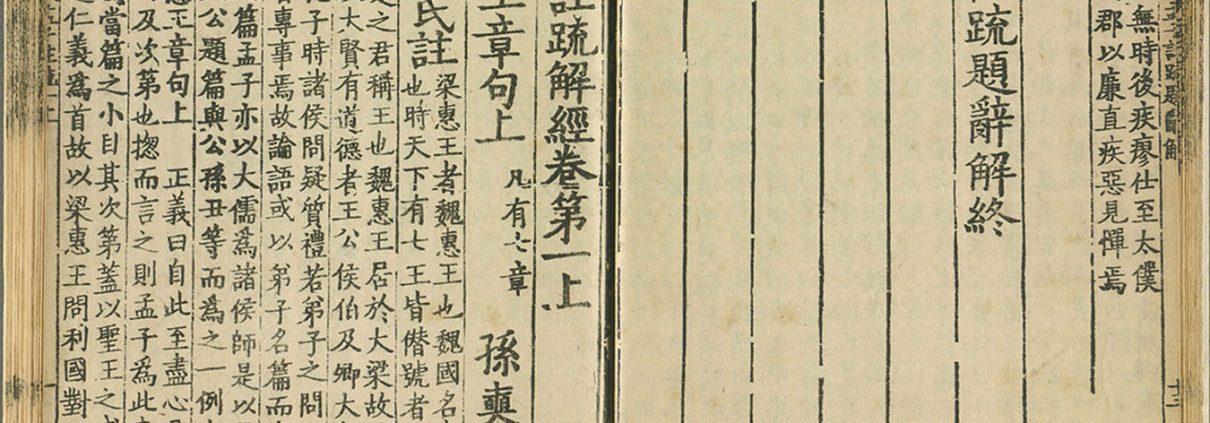 無時後疾瘳仕至太僕
郡以廉直疾惡見憚焉
疏題辭解終
註疏解經卷第一上
王章句上
凡有七章
孫奭
氏註
梁惠王者魏惠王也魏國名
也時天下有七王皆僭號者
之君稱王也魏惠王居於大梁故
大賢有道德者王公侯伯及卿大
子時諸侯問疑質禮若弟子之問
專事焉故論語或以弟子名篇而
篇孟子亦以大儒爲諸侯師是以
公題篇與公孫丑等而爲之一例
惠王章句上 正義曰自此至盡心
及次第也揔而言之則孟子爲此
當篇之小目其次第蓋以聖王之
仁義爲首故以梁惠王問利國對